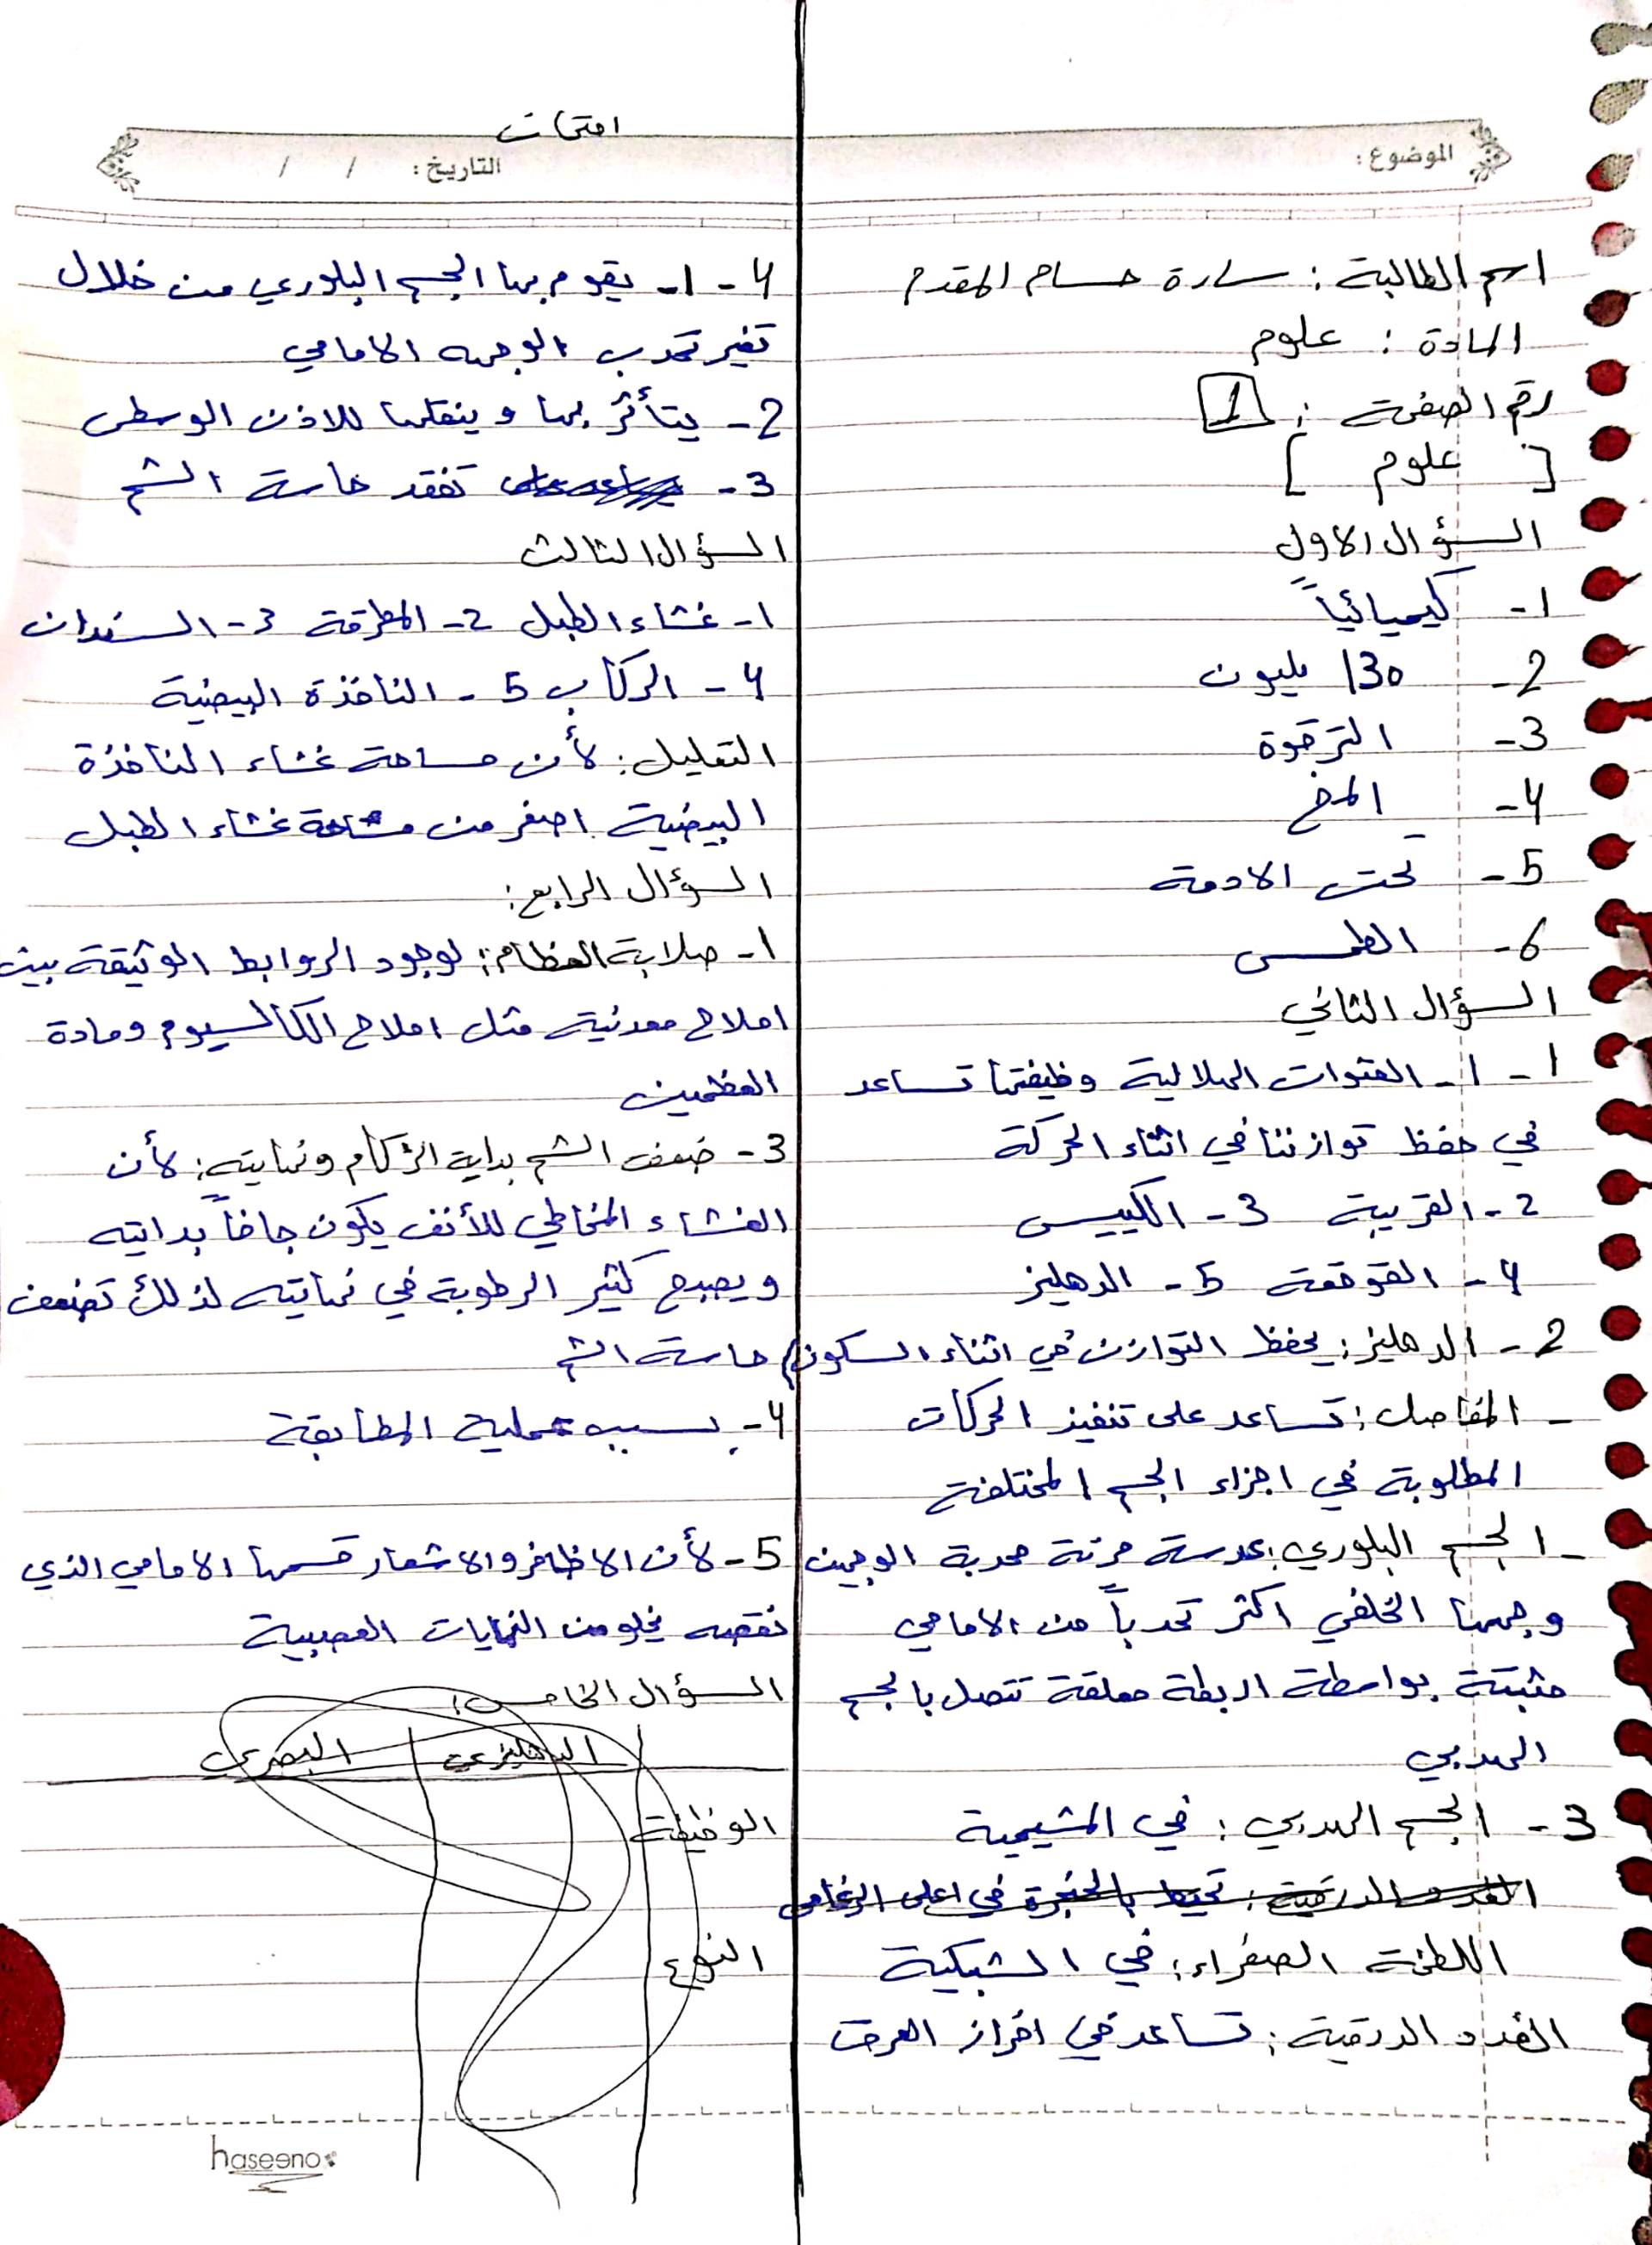 امتحان
الموضوع:
التاريخ: / /
اسم الطالبة: سارة حسام المقدم
المادة: علوم
رقم الصفحة: 1
[ علوم ]
السؤال الاول
1- كيميائياً
2- 130 مليون
3- الترقوة
4- المخ
5- تحت الادمة
6- اللمس
السؤال الثاني
1- 1- القنوات الهلالية وظيفتها تساعد
في حفظ توازننا في اثناء الحركة
2- القريبة 3- الكييس
4- القوقعة 5- الدهليز
2- الدهليز: يحفظ التوازن في اثناء السكون
- المفاصل: تساعد على تنفيذ الحركات
المطلوبة في اجزاء الجسم المختلفة
- الجسم البلوري: عدسة مرنة محدبة الوجهين
وجهها الخلفي اكثر تحدباً من الامامي
مثبتة بواسطة اربطة معلقة تتصل بالجسم
الهدبي
3- الجسم الهدبي: في المشيمية
الغدد الدرقية: تحيط بالحنجرة في اعلى الرغامى
اللطخة الصفراء: في الشبكية
الغدد الدرقية: تساعد في افراز العرق
4- 1- يقوم بها الجسم البلوري من خلال
تغير تحدب الوجه الامامي
2- يتأثر بها و ينقلها للاذن الوسطى
3- تفقد حاسة الشم
السؤال الثالث
1- غشاء الطبل 2- المطرقة 3- السندان
4- الركاب 5- النافذة البيضية
التعليل: لأن مساحة غشاء النافذة
البيضية اصغر من مساحة غشاء الطبل
السؤال الرابع:
1- صلابة العظام: لوجود الروابط الوثيقة بين
املاح معدنية مثل املاح الكالسيوم ومادة
العظمين
3- ضعف الشم بداية الزكام ونهايته: لأن
الغشاء المخاطي للأنف يكون جافاً بدايته
ويصبح كثير الرطوبة في نهايته لذلك تضعف
حاسة الشم
4- بسبب عملية المطابقة
5- لأن الاظافر والاشعار قسمها الامامي الذي
نقصه يخلو من النهايات العصبية
السؤال الخامس:
الدهليزي البصري
الوظيفة
النوع
haseeno